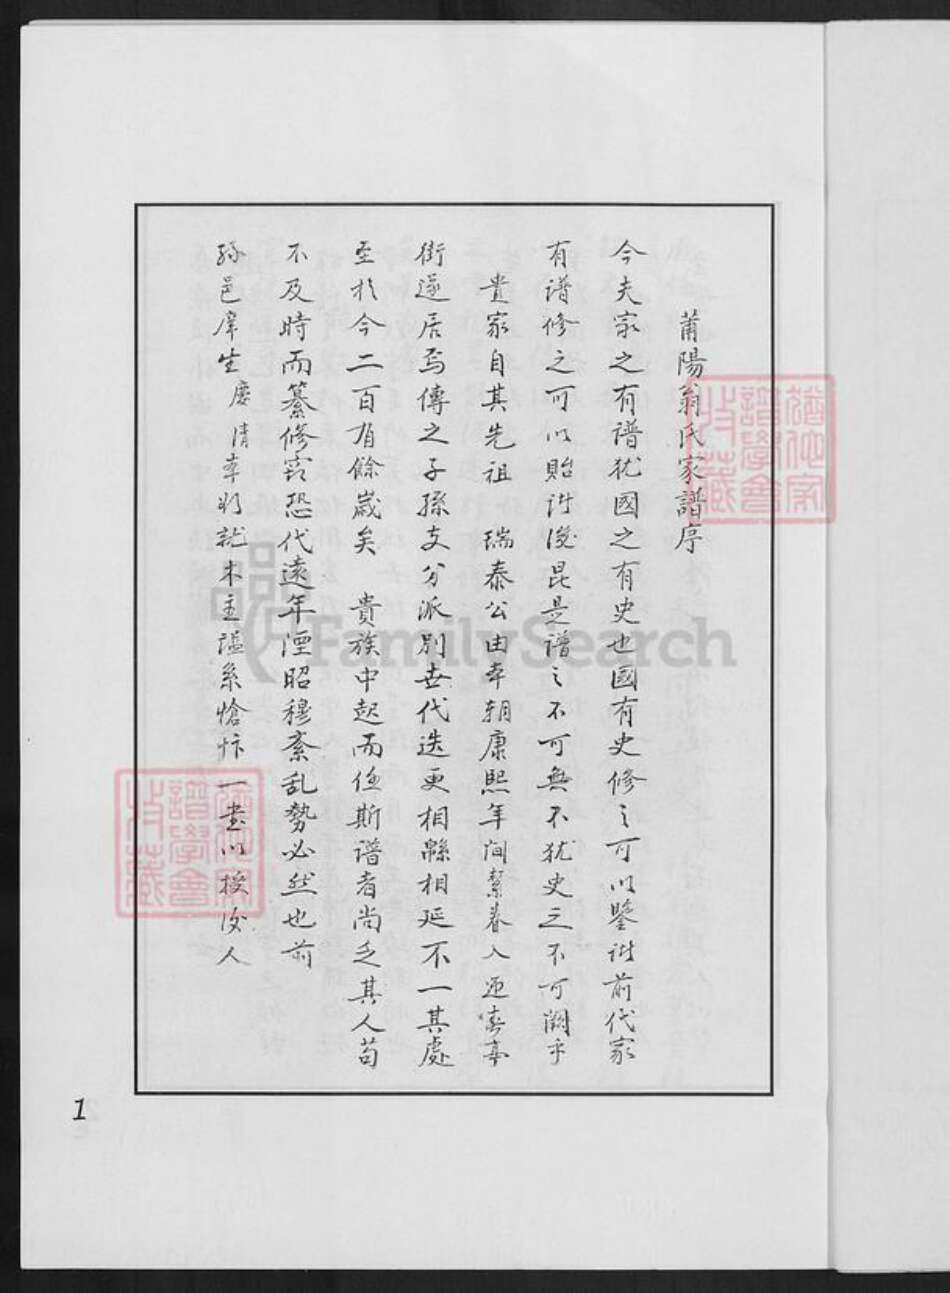 莆陽翁氏家譜序
今夫家之有譜犹國之有史也國有史修之可以鑒諸前代家
有譜修之可以貽諸後昆是譜之不可無不犹史之不可闕乎
貴家自其先祖 瑞泰公由本朝康熙年间挈眷入迎春亭
街遂居焉傳之子孫支分派别世代迭更相緜相延不一其處
至於今二百有餘歲矣 貴族中起而任斯譜者尚乏其人苟
不及時而纂修窃恐代遠年湮昭穆紊乱勢必然也前
孫邑庠生慶清率行就木主謚系
一書以授
人
猶他家譜學會收藏
猶他家譜學會收藏
FamilySearch
1